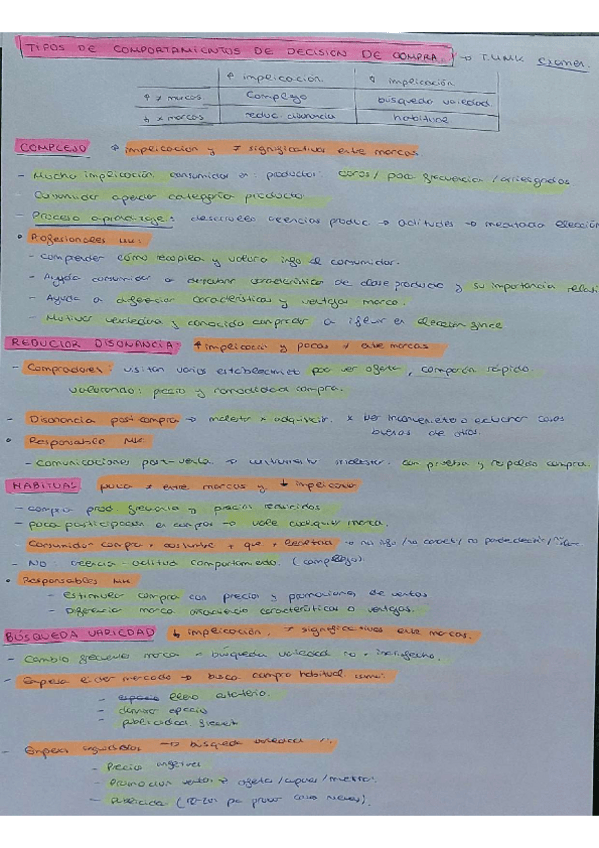 TIPOS DE COMPORTAMIENTOS DE DECISION DE COMPRA. → T.U.MK Examen.
↑ implicación ↓ implicación
↑ ≠ marcas Complejo búsqueda variedad
↓ ≠ marcas reduc. disonancia habitual
COMPLEJO ↑ implicacion y ≠ significativas entre marcas.
- Mucha implicación consumidor en productos: caros / poca frecuencia / arriesgados
Consumidor aprender categoria producto.
- Proceso aprendizaje: desarrollo creencias produc → actitudes → meditada elección
• Profesionales MK:
- comprender cómo recopila y valora info el consumidor.
- Ayuda consumidor a características de clase producto y su importancia relati
- Ayuda a diferenciar características y ventajas marca.
- Motivar vendedores y conocidos comprador a influir en eleccion
REDUCIR DISONANCIA: ↑ implicacion y pocas ≠ entre marcas
- Compradores: visitan varios establecimient para ver ofertas, compran rápido.
valorando: precio y comodidad compra.
- Disonancia postcompra → malestar x adquirir. x ver inconvenientes o escuchar cosas
buenas de otros.
• Responsable MK.
- Comunicaciones post-venta → con pruebas y respaldo compra.
HABITUAL poca ≠ entre marcas y ↓ implicacion
- compra prod frecuencia y precios reducidos
- poca participacion en compras → vale cualquier marca.
Consumidor compra + costumbre + que + → no info / no
- NO creencia - actitud comportamiento. (complejo).
• Responsables MK
- estimular compra con precios y promociones de ventas
- diferenciar marca características o ventajas.
BÚSQUEDA VARIEDAD ↓ implicación, ≠ significativas entre marcas.
- Cambio frecuente marca = búsqueda variedad no = insatisfecho.
- Empresa lider mercado → busca compra habitual
- lleno
- espacio
- publicidad frecuent
- Empresas → búsqueda variedad
- Precios
- Promocion ventas → ofertas / cupones / muestras.
- Publicidad ( pa probar cosas nuevas).